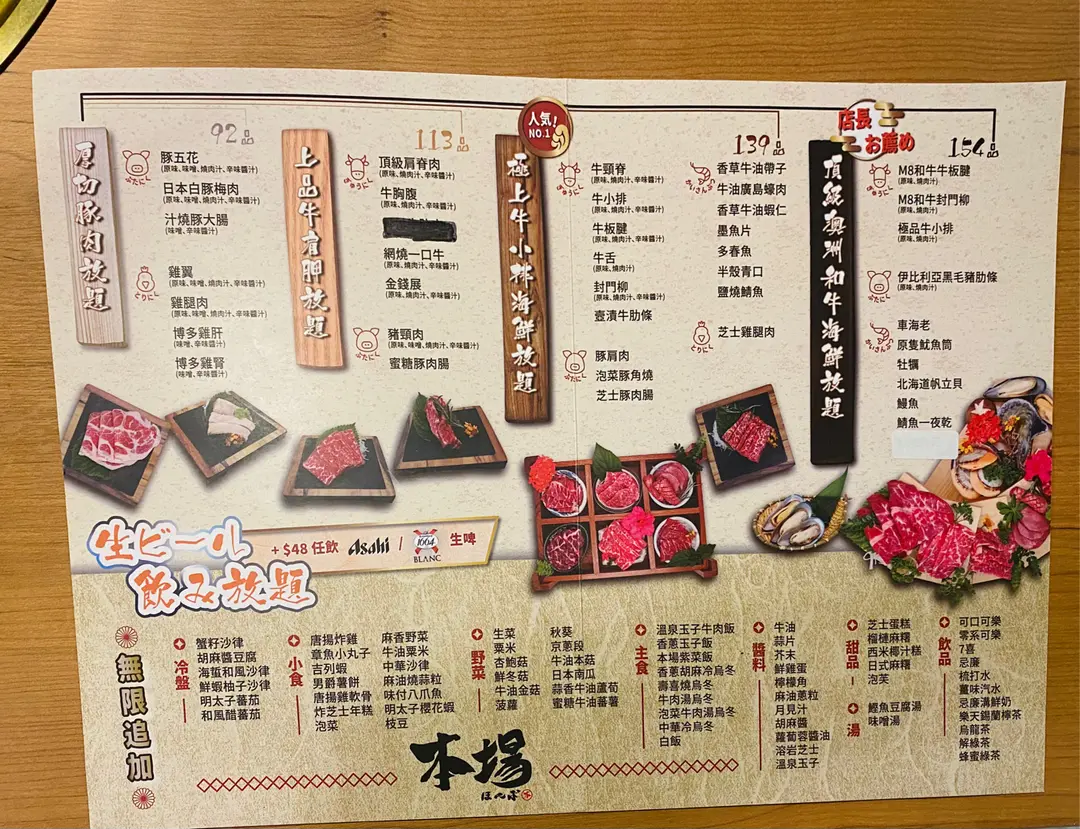 厚切豚肉放題
92品
豚五花
(原味、味噌、燒肉汁、辛味醬汁)
日本白豚梅肉
(原味、味噌、燒肉汁、辛味醬汁)
汁燒豚大腸
(味噌、辛味醬汁)
ぶたにし
雞翼
(原味、味噌、燒肉汁、辛味醬汁)
雞腿肉
(原味、味噌、燒肉汁、辛味醬汁)
博多雞肝
(味噌、辛味醬汁)
博多雞腎
(味噌、辛味醬汁)
上品牛肩胛放題
113品
頂級肩脊肉
(原味、燒肉汁、辛味醬汁)
牛胸腹
(原味、燒肉汁、辛味醬汁)
網燒一口牛
(原味、燒肉汁、辛味醬汁)
金錢展
(原味、燒肉汁、辛味醬汁)
豬頸肉
(原味、味噌、燒肉汁、辛味醬汁)
蜜糖豚肉腸
人気!
NO.1
極上牛小排海鮮放題
139品
牛頸脊
(原味、燒肉汁、辛味醬汁)
牛小排
(原味、燒肉汁、辛味醬汁)
牛板腱
(原味、燒肉汁、辛味醬汁)
牛舌
(原味、燒肉汁)
封門柳
(原味、燒肉汁、辛味醬汁)
壺漬牛肋條
豚肩肉
泡菜豚角燒
芝士豚肉腸
香草牛油帶子
牛油廣島蠔肉
香草牛油蝦仁
墨魚片
多春魚
半殼青口
鹽燒鯖魚
芝士雞腿肉
店長
お薦め
頂級澳洲和牛海鮮放題
154品
M8和牛牛板腱
(原味、燒肉汁)
M8和牛封門柳
(原味、燒肉汁)
極品牛小排
(原味、燒肉汁)
伊比利亞黑毛豬肋條
(原味、燒肉汁)
車海老
原隻魷魚筒
牡蠣
北海道帆立貝
鰻魚
鯖魚一夜乾
生ビール
飲み放題
+ $48 任飲 Asahi / 1664 BLANC 生啤
無限追加
冷盤
蟹籽沙律
胡麻醬豆腐
海蜇和風沙律
鮮蝦柚子沙律
明太子蕃茄
和風醋蕃茄
小食
唐揚炸雞
章魚小丸子
吉列蝦
男爵薯餅
唐揚雞軟骨
炸芝士年糕
泡菜
麻香野菜
牛油粟米
中華沙律
麻油燒蒜粒
味付八爪魚
明太子櫻花蝦
枝豆
野菜
生菜
粟米
杏鮑菇
鮮冬菇
牛油金菇
菠蘿
秋葵
京蔥段
牛油本菇
日本南瓜
蒜香牛油蘆荀
蜜糖牛油蕃薯
主食
溫泉玉子牛肉飯
香蔥玉子飯
本場紫菜飯
香蔥胡麻冷烏冬
壽喜燒烏冬
牛肉湯烏冬
泡菜牛肉湯烏冬
中華冷烏冬
白飯
醬料
牛油
蒜片
芥末
鮮雞蛋
檸檬角
麻油蔥粒
月見汁
胡麻醬
蘿蔔蓉醬油
溶岩芝士
溫泉玉子
甜品
芝士蛋糕
榴槤麻糬
西米椰汁糕
日式麻糬
泡芙
湯
鰹魚豆腐湯
味噌湯
飲品
可口可樂
零系可樂
7喜
忌廉
梳打水
薑味汽水
忌廉溝鮮奶
樂天錫蘭檸茶
烏龍茶
解綠茶
蜂蜜綠茶
本場
ほんば